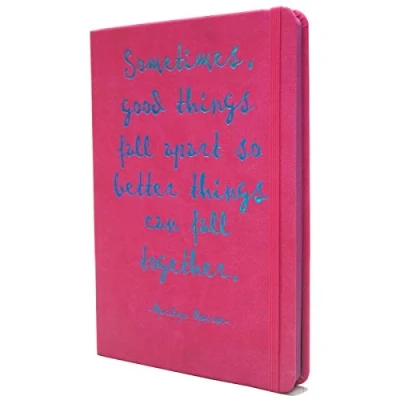 Sometimes,
good things
fall apart so
better things
can fall
together.
-Marilyn Monroe-